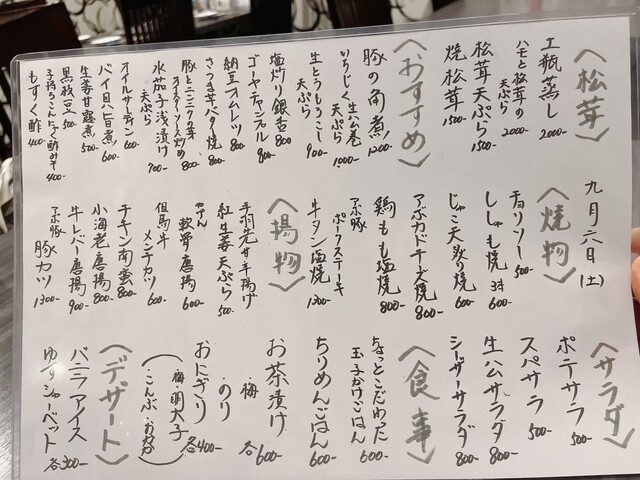 〈松茸〉
土瓶蒸し 2000-
ハモと松茸の天ぷら 2000-
松茸天ぷら 1500-
焼松茸 1500-
〈おすすめ〉
豚の角煮 1200-
いちじく生ハム巻天ぷら 1000-
生とうもろこし天ぷら 900-
塩炒り銀杏 800-
ゴーヤチャンプル 800-
納豆オムレツ 800-
さつま芋バター焼 800-
豚とニンニクの芽オイスターソース炒め 800-
水茄子浅漬け 700-
天ぷら
オイルサーデン 600-
バイ貝旨煮 600-
生姜甘露煮 500-
黒枝豆 500-
子持ちこんにゃく酢みそ 400-
もずく酢 400-
九月六日(土)
〈焼物〉
チョリソー 500-
ししゃも焼 3本 600-
じゃこ天炙り焼 600-
アボカドチーズ焼 800-
鶏もも塩焼 800-
アボ豚ポークステーキ
牛タン塩焼 1300-
〈揚物〉
手羽先サ干揚げ
紅生姜天ぷら 500-
やげん軟骨唐揚 600-
但馬牛メンチカツ 600-
チキン南蛮 800-
小海老唐揚 800-
牛レバー唐揚 900-
アボ豚豚カツ 1300-
〈サラダ〉
ポテサラ 500-
スパサラ 500-
生ハムサラダ 800-
シーザーサラダ 800-
〈食事〉
ちょっとこだわった玉子かけごはん 600-
ちりめんごはん 600-
お茶漬け 各600-
梅
のり
おにぎり 各400-
(梅 明太子
こんぶ・おかか)
〈デザート〉
バニラアイス
ゆずシャーベット 各300-